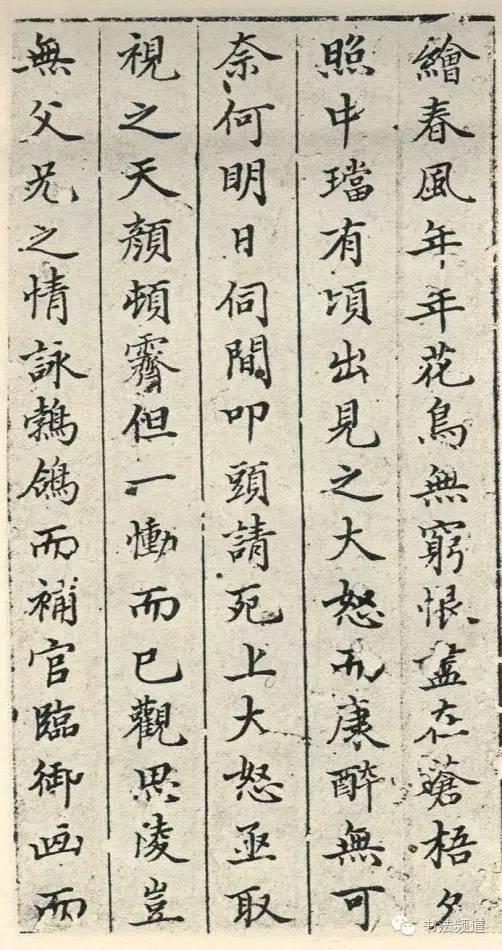 繪春風年年花鳥無窮恨盡在蒼梧夕
照中璫有頃出見之大怒而康醉無可
奈何明日伺間叩頭請死上大怒亟取
視之天顏頓霽但一慟而已觀思陵豈
無父兄之情詠鵓鴿而補官臨御画而
书法频道